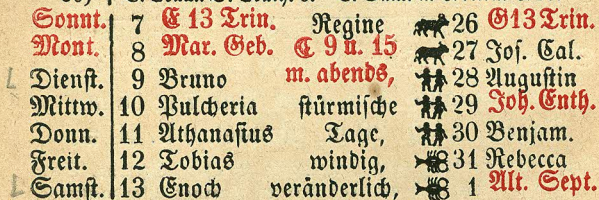 Sonnt. 7 E 13 Trin. Regine 26 G13 Trin.
Mont. 8 Mar. Geb. ☾ 9 u. 15 27 Jos. Cal.
Dienst. 9 Bruno m. abends, 28 Augustin
Mittw. 10 Pulcheria stürmische 29 Joh. Enth.
Donn. 11 Athanasius Tage, 30 Benjam.
Freit. 12 Tobias windig, 31 Rebecca
Samst. 13 Enoch veränderlich, 1 Alt. Sept.